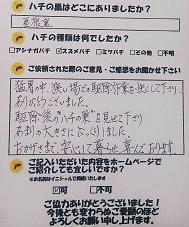 ハチの巣はどこにありましたか?
屋根裏
ハチの種類は何でしたか?
□アシナガバチ ☑スズメバチ □ミツバチ □その他 □不明
ご依頼された際のご意見・ご感想をお聞かせ下さい
猛暑の中、狭い場での駆除作業を して下さり、
ありがとうございました。
駆除後のハチの巣を見せて下さり、
あまりの大きさにびっくりしました。
おかげさまで安心して暮らせ ております。
ご記入いただいた内容をホームページで
ご紹介しても宜しいですか?
※お名前はイニシャルで掲載いたします
☑可 □不可
ご協力ありがとうございました!
今後とも変わらぬご愛顧のほど
よろしくお願い申し上げます。